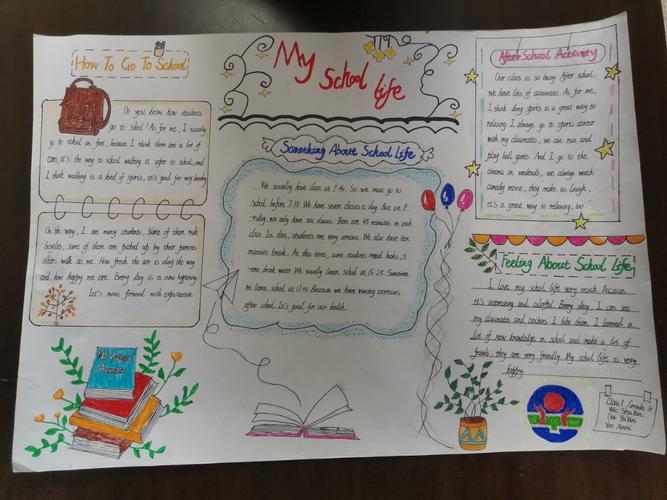 My School Life
How To Go To School
Do you know how students
go to school? As for me, I usually
go to school on foot, because I think there are a lot of
cars, it's the way to school walking is safer to school, and
I think walking is a kind of sports, it's good for my
On the way, I see many students, Some of them ride
bicycles, some of them are picked up by their parents
others walk as me. How fresh the air is along the way
and how happy we are. Every day is a new beginning.
Let's move forward with expectation
Something About School Life
We usually have class at 7:40. So we must go to
school before 7:35. We have seven classes a day. But on
we only have six classes. There are 45 minutes in each
class. In class, students are very serious. We also have ten
minutes break. At this time, some students read books, s
-ome drink water. We usually leave school at 16:25. Sometimes
we leave school at 17:00. Because we have running exercises
after school. It's good for our health.
After-School Activity
Our class is so busy. After school,
we have lots of activities. As for me,
I think doing sports is a great way to
relaxing. I always go to sports center
with my classmates, we can run and
play ball games. And I go to the
cinema on weekends, we always watch
comedy movie, they make us laugh,
it's a great way to relaxing, too.
Feeling About School Life
I love my school life very much. Because
it's interesting and colorful. Every day, I can see
my classmates and teachers. I like them. I learned a
lot of new knowledge in school and make a lot of
friends, they are very friendly. My school life is very
happy.
Class 1, Grade